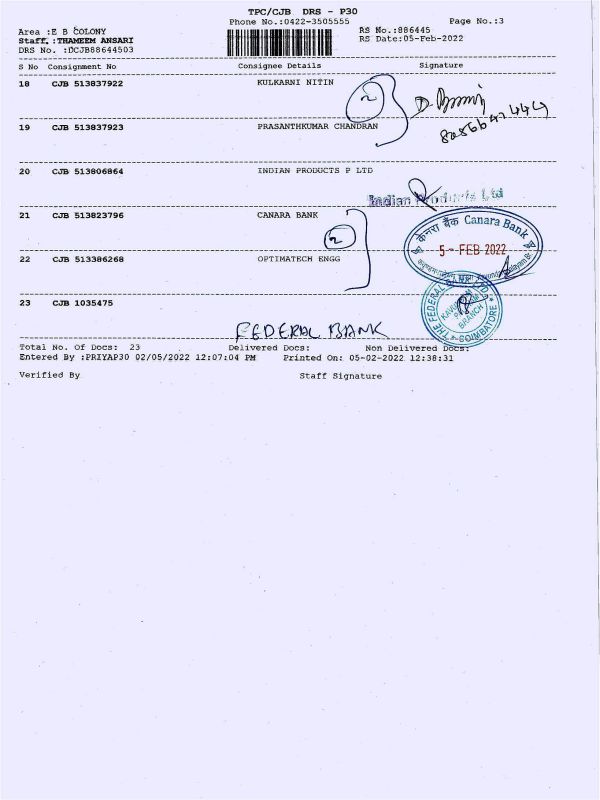 TPC/CJB DRS - P30
Phone No.:0422-3505555
Page No.:3
Area :E B COLONY
RS No.:886445
Staff. :THAMEEM ANSARI
RS Date:05-Feb-2022
DRS No. :DCJB88644503
S No Consignment No Consignee Details Signature
18 CJB 513837922 KULKARNI NITIN
2
19 CJB 513837923 PRASANTHKUMAR CHANDRAN
20 CJB 513806864 INDIAN PRODUCTS P LTD
Indian Products Ltd
21 CJB 513823796 CANARA BANK
केनरा बैंक Canara Bank
2
5 - FEB 2022
22 CJB 513386268 OPTIMATECH ENGG
23 CJB 1035475
THE FEDERAL
BRANCH
COIMBATORE
FEDERAL BANK
Total No. of Docs: 23 Delivered Docs: Non Delivered Docs:
Entered By :PRIYAP30 02/05/2022 12:07:04 PM Printed On: 05-02-2022 12:38:31
Verified By Staff Signature